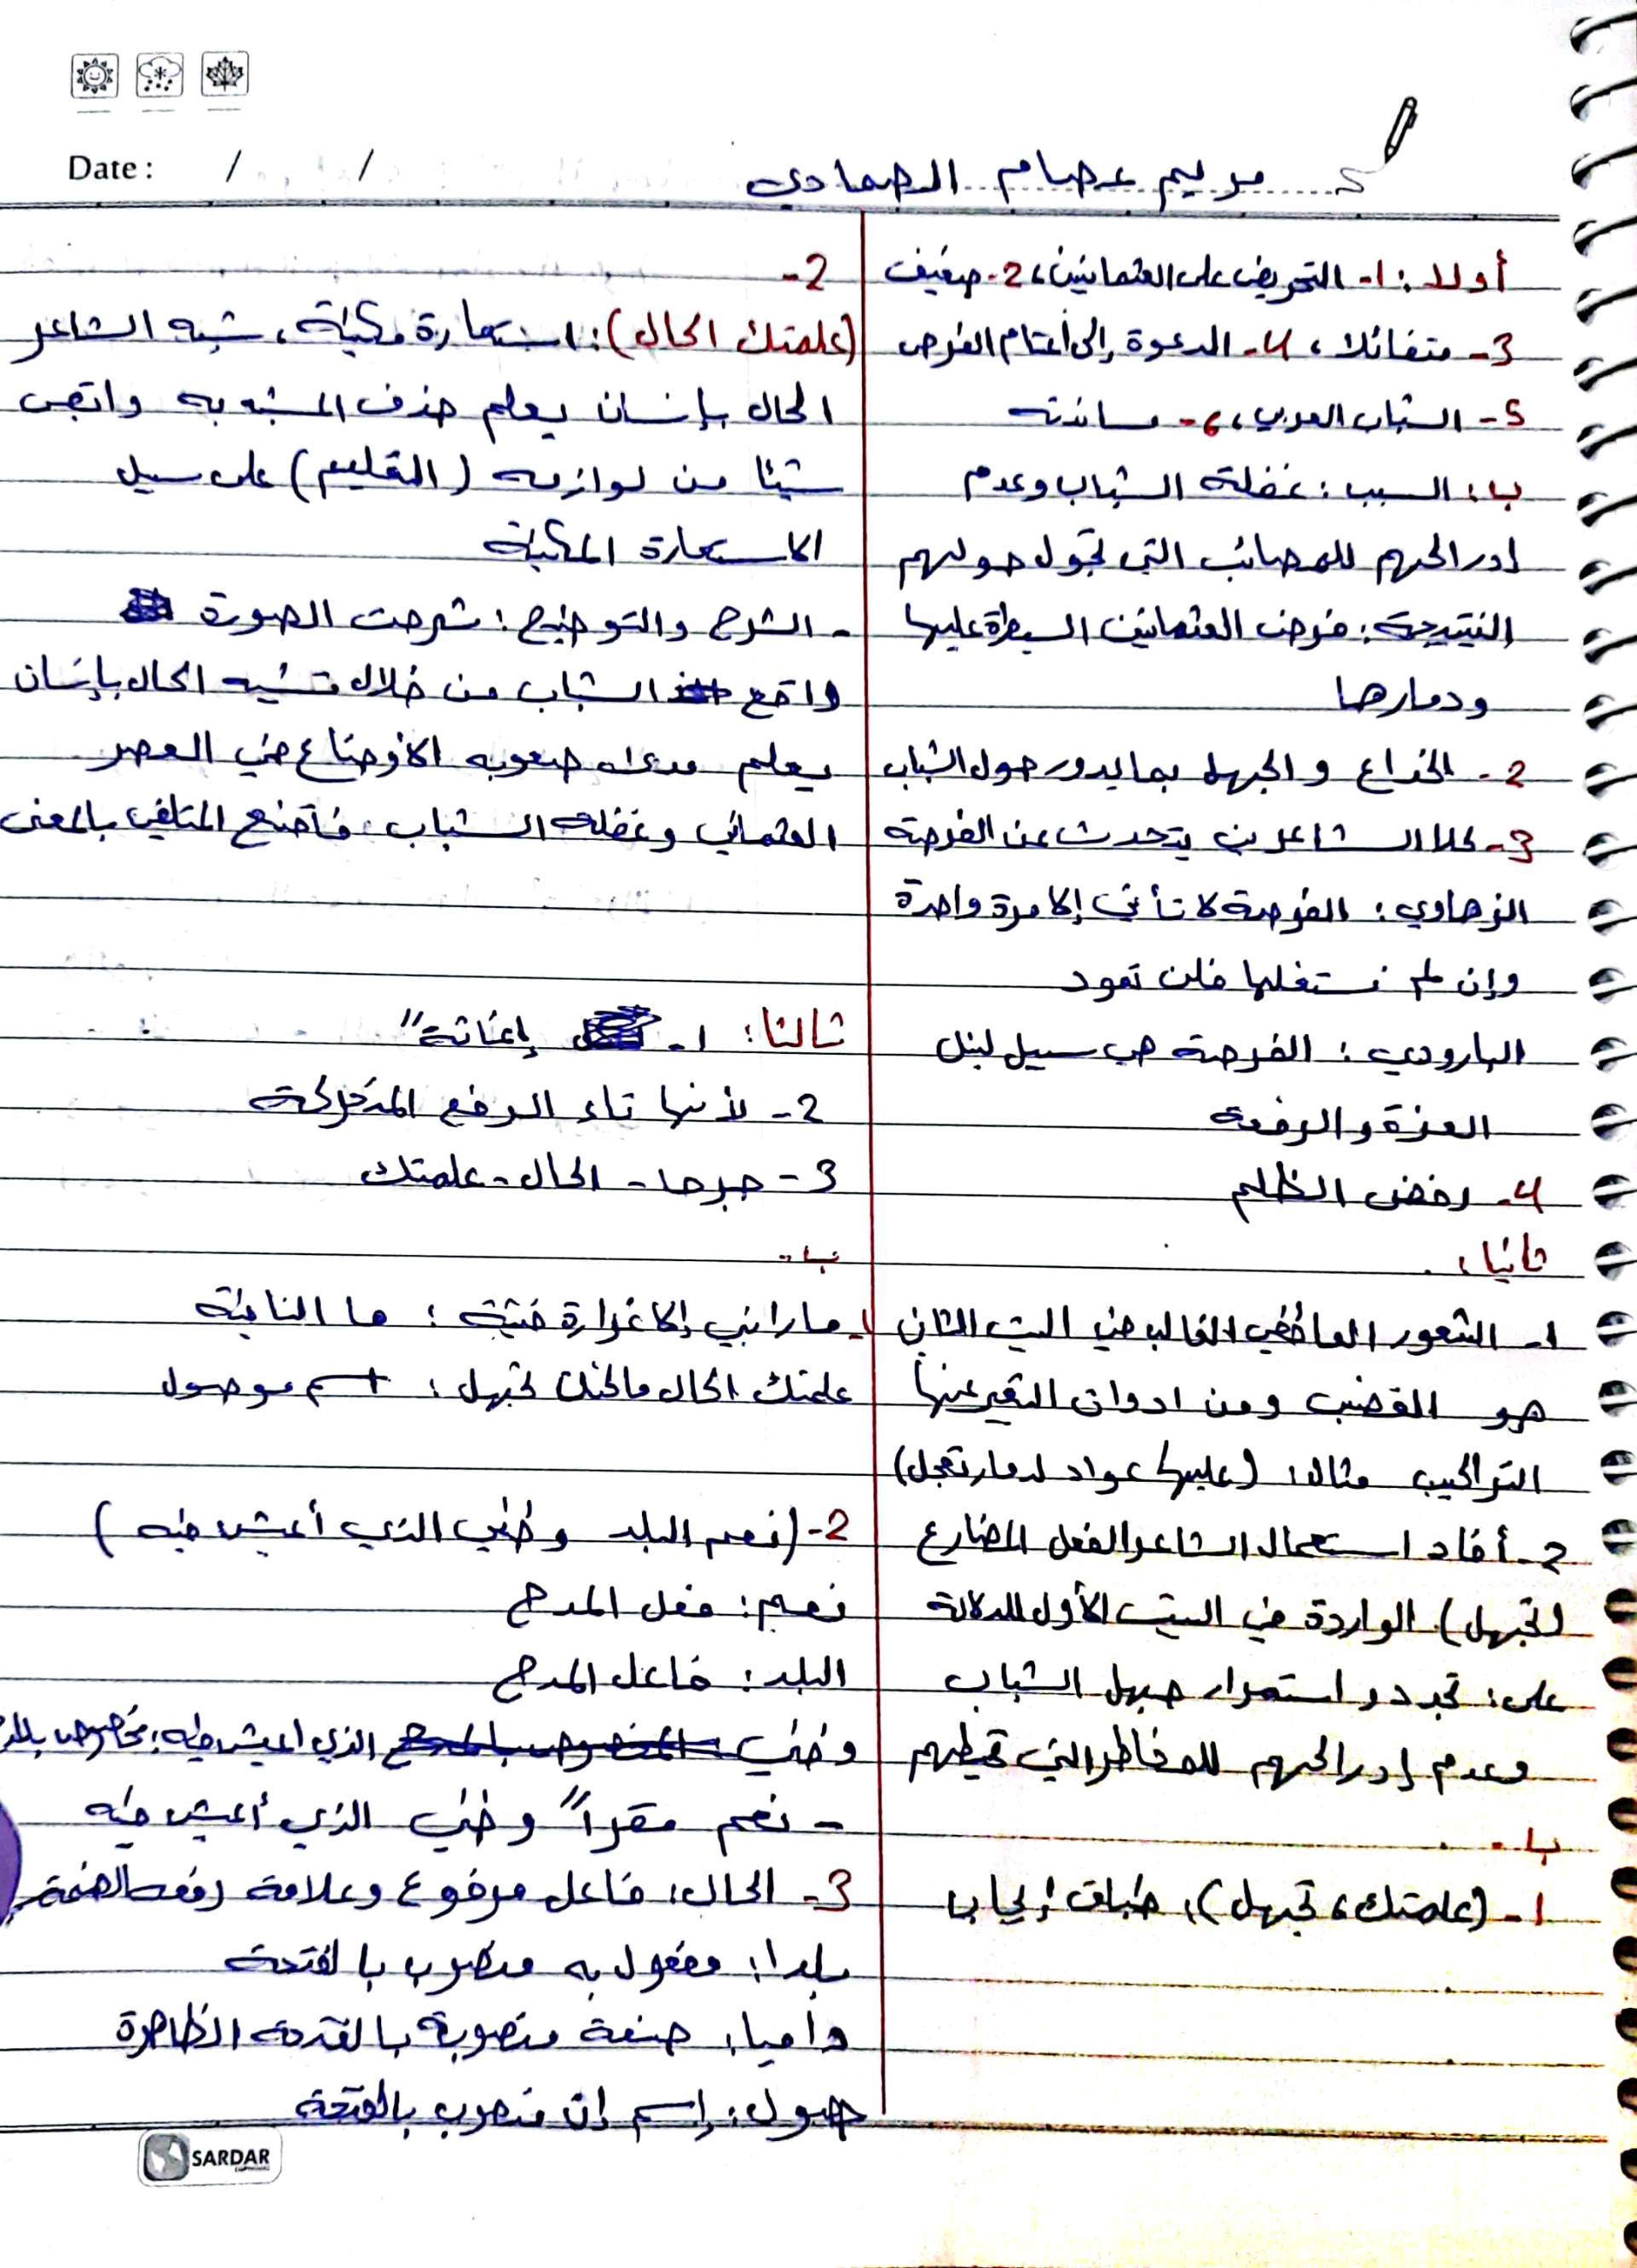 Date : / /
مريم عصام الصمادي
أولا : 1- التحريض على العثمانيين، 2- ضعيف
3- متفائلا، 4- الدعوة إلى اغتنام الفرص
5- الشباب العربي، 6- ساندته
ب: السبب : غفلة الشباب وعدم
إدراكهم للمصائب التي تجول حولهم
النتيجة : فرض العثمانيين السيطرة عليها
ودمارها
2- الخداع و الجهل بما يدور حول الشباب
3- كلا الشاعرين يتحدث عن الفرصة
الزهاوي : الفرصة لا تأتي إلا مرة واحدة
وإن لم نستغلها فلن تعود
البارودي : الفرصة هي سبيل لنيل
العزة والرفعة
4- رفض الظلم
ثانيا :
1- الشعور العاطفي الغالب في البيت الثاني
هو الغضب ومن ادوات التعبير عنها
التراكيب مثال: (عليها عواد للدمار تعجل)
2- أفاد استعمال الشاعر الفعل المضارع
(تجهل) الواردة في البيت الأول للدلالة
على: تجدد و استمرار جهل الشباب
وعدم إدراكهم للمخاطر التي تحيطهم
ب -
1- (علمتك، تجهل): طباق إيجاب
2-
(علمتك الحال) : استعارة مكنية، شبه الشاعر
الحال بإنسان يعلم حذف المشبه به واتبقى
شيئا من لوازمه (التعليم) على سبيل
الاستعارة المكنية
- الشرح والتوضيح : شرحت الصورة
واقع الشباب من خلال تشبيه الحال بإنسان
يعلم مدى صعوبه الأوضاع في العصر
العثماني وغفله الشباب، فأقنع المتلقي بالمعنى
ثالثا: 1- إغاثة"
2- لأنها تاء الرفع المتحركة
3- جرحا - الحال - علمتك
ب -
1- ما رابني إلا غرارة فتية : ما النافية
علمتك الحال ما كنت تجهل : اسم موصول
2- (نعم البلد وطني الذي أعيش فيه)
نعم : فعل المدح
البلد : فاعل المدح
وطني الذي اعيش فيه: مخصوص بالمدح
- نعم مقراً" وطني الذي أعيش فيه
3- الحال: فاعل مرفوع وعلامة رفعه الضمة
بلدا: مفعول به منصوب بالفتحة
داميا: صفة منصوبة بالفتحة الظاهرة
: إسم إن منصوب بالفتحة
SARDAR